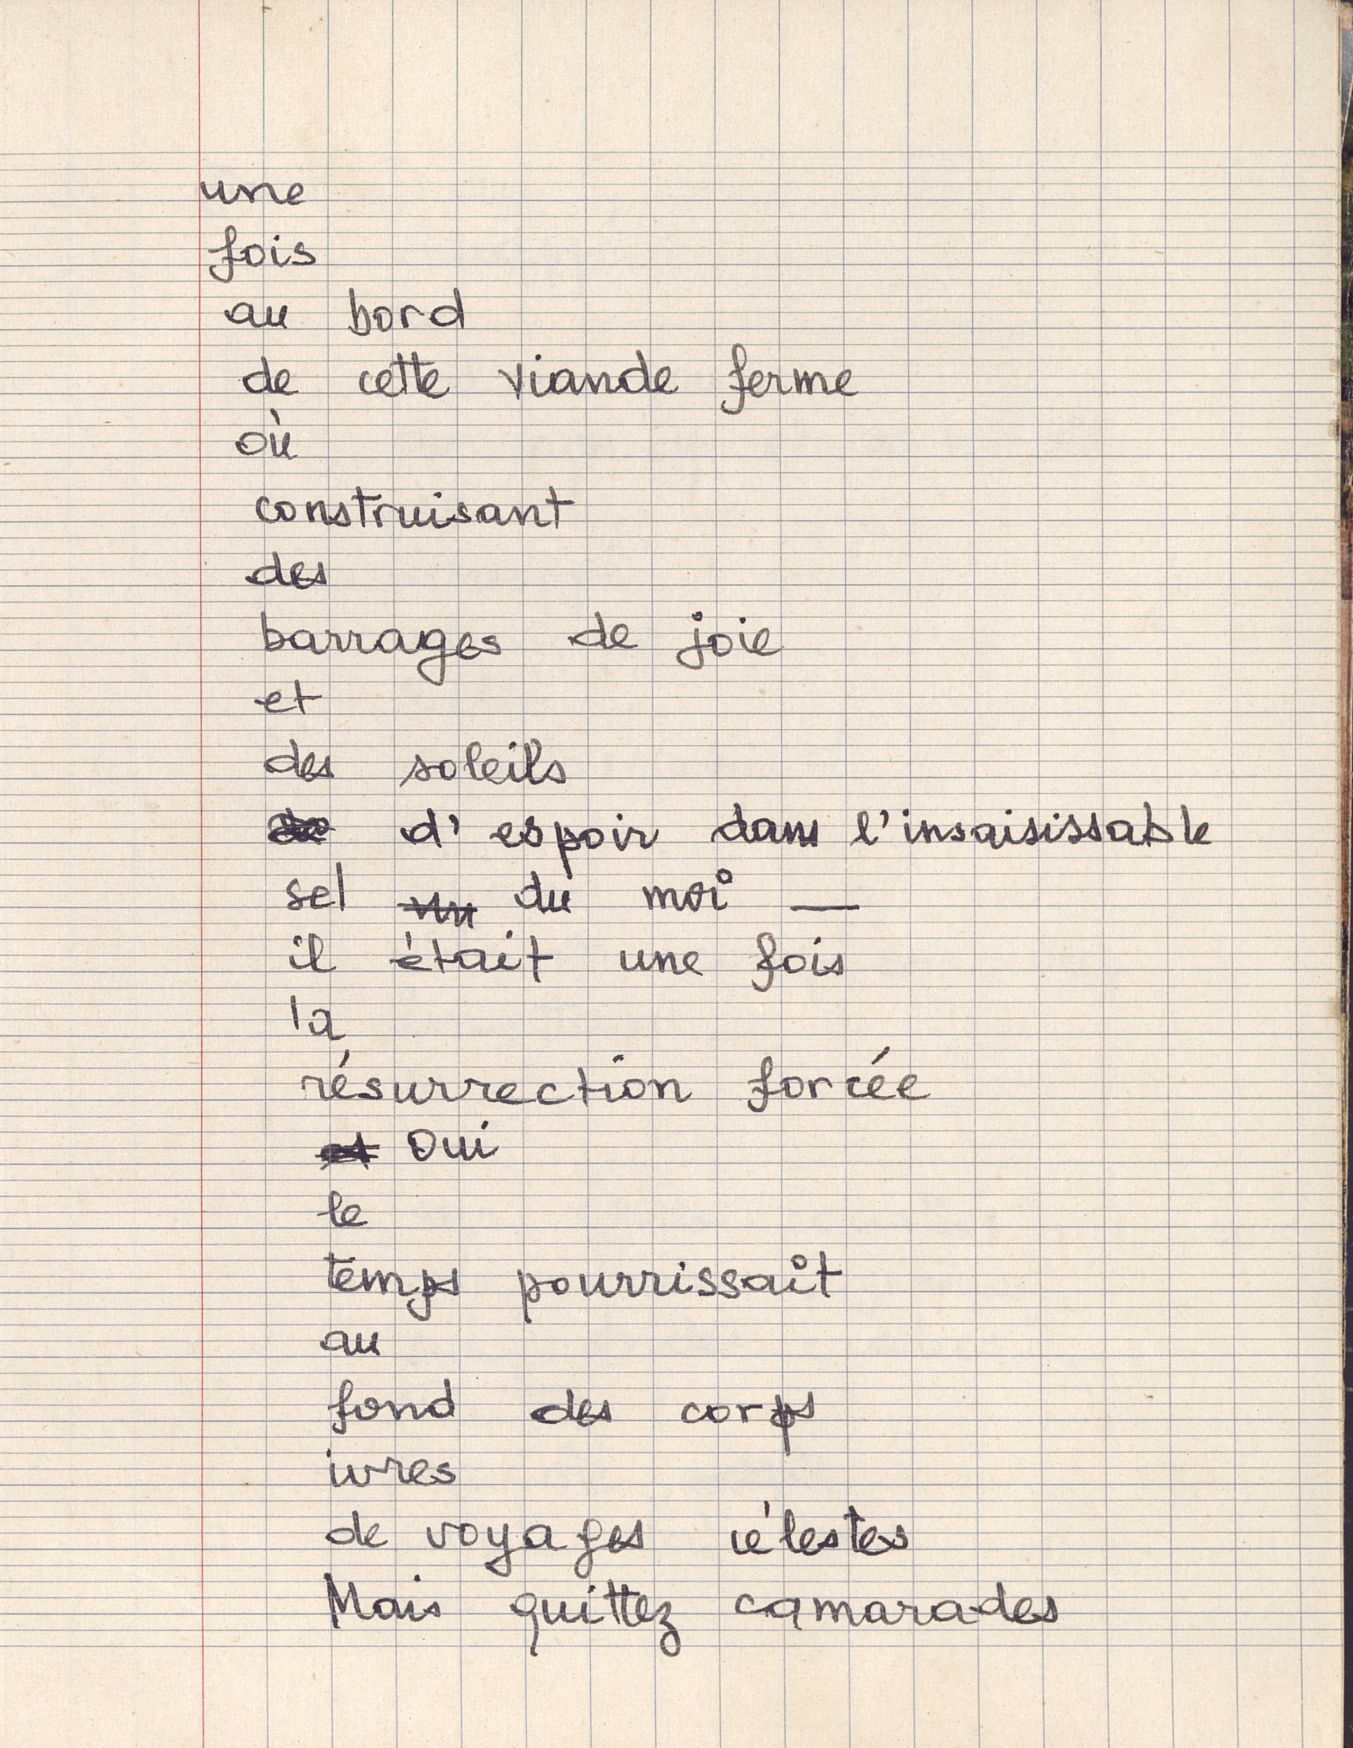 une
fois
au bord
de cette viande ferme
où
construisant
des
barrages de joie
et
des soleils
d'espoir dans l'insaisissable
sel du moi —
il était une fois
la
résurrection forcée
Oui
le
temps pourrissait
au
fond des corps
ivres
de voyages célestes
Mais quittez camarades